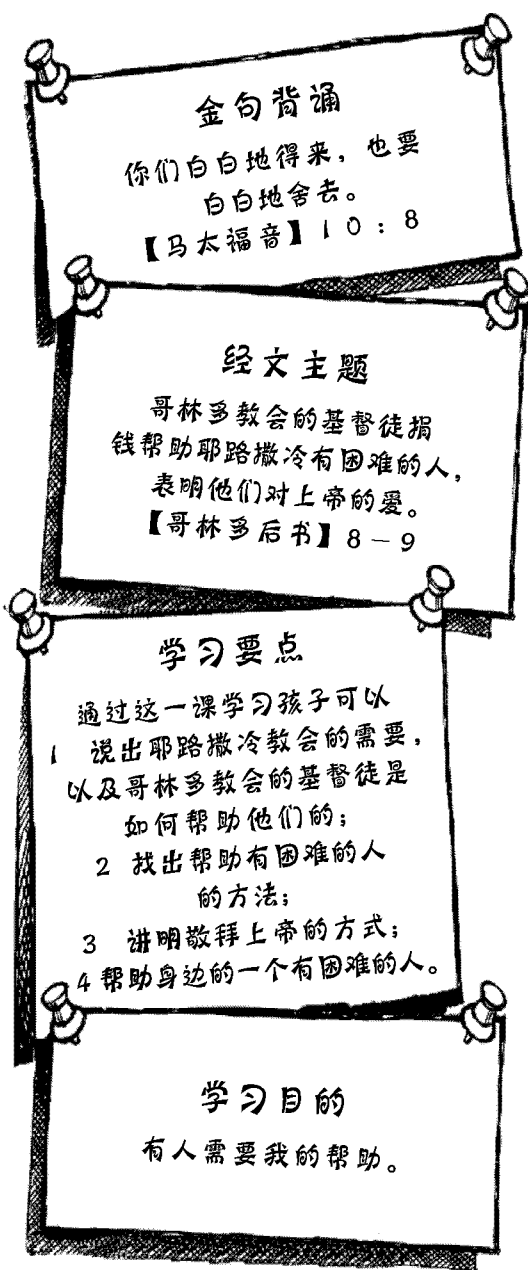 金句背诵
你们白白地得来，也要
白白地舍去。
【马太福音】10：8
经文主题
哥林多教会的基督徒捐
钱帮助耶路撒冷有困难的人，
表明他们对上帝的爱。
【哥林多后书】8－9
学习要点
通过这一课学习孩子可以
1 说出耶路撒冷教会的需要，
以及哥林多教会的基督徒是
如何帮助他们的；
2 找出帮助有困难的人
的方法；
3 讲明敬拜上帝的方式；
4 帮助身边的一个有困难的人。
学习目的
有人需要我的帮助。